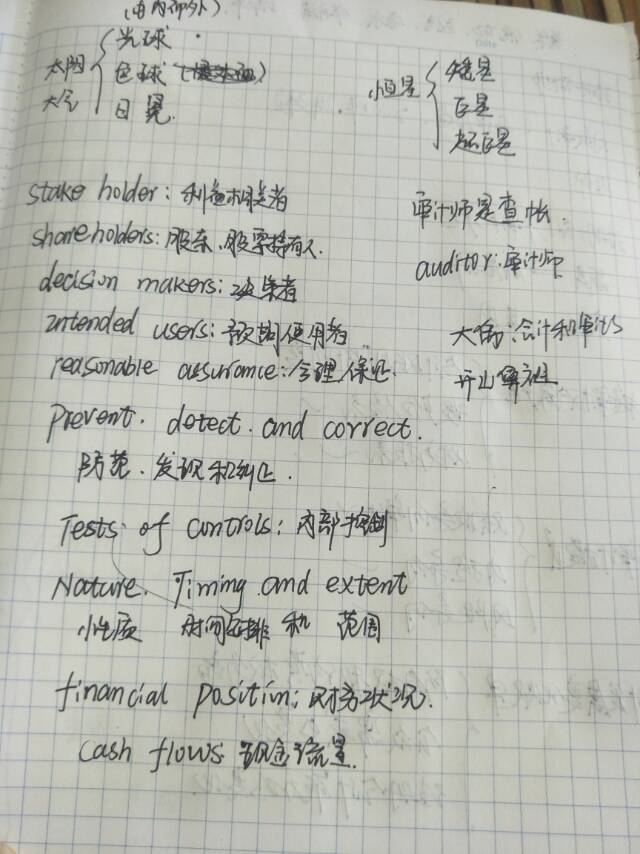 (由内向外)
太阳大气 光球
色球
日冕
恒星 矮星
巨星
超巨星
stake holder: 利益相关者
shareholders: 股东、股票持有人.
decision makers: 决策者
intended users: 预期使用者
reasonable assurance: 合理保证.
审计师是查帐.
auditor: 审计师
大禹: 会计和审计
开山鼻祖
Prevent. detect. and correct.
防范. 发现和纠正.
Tests of controls: 内部控制
Nature. Timing and extent
性质 时间安排 和 范围
financial positin: 财务状况.
cash flows 现金流量.